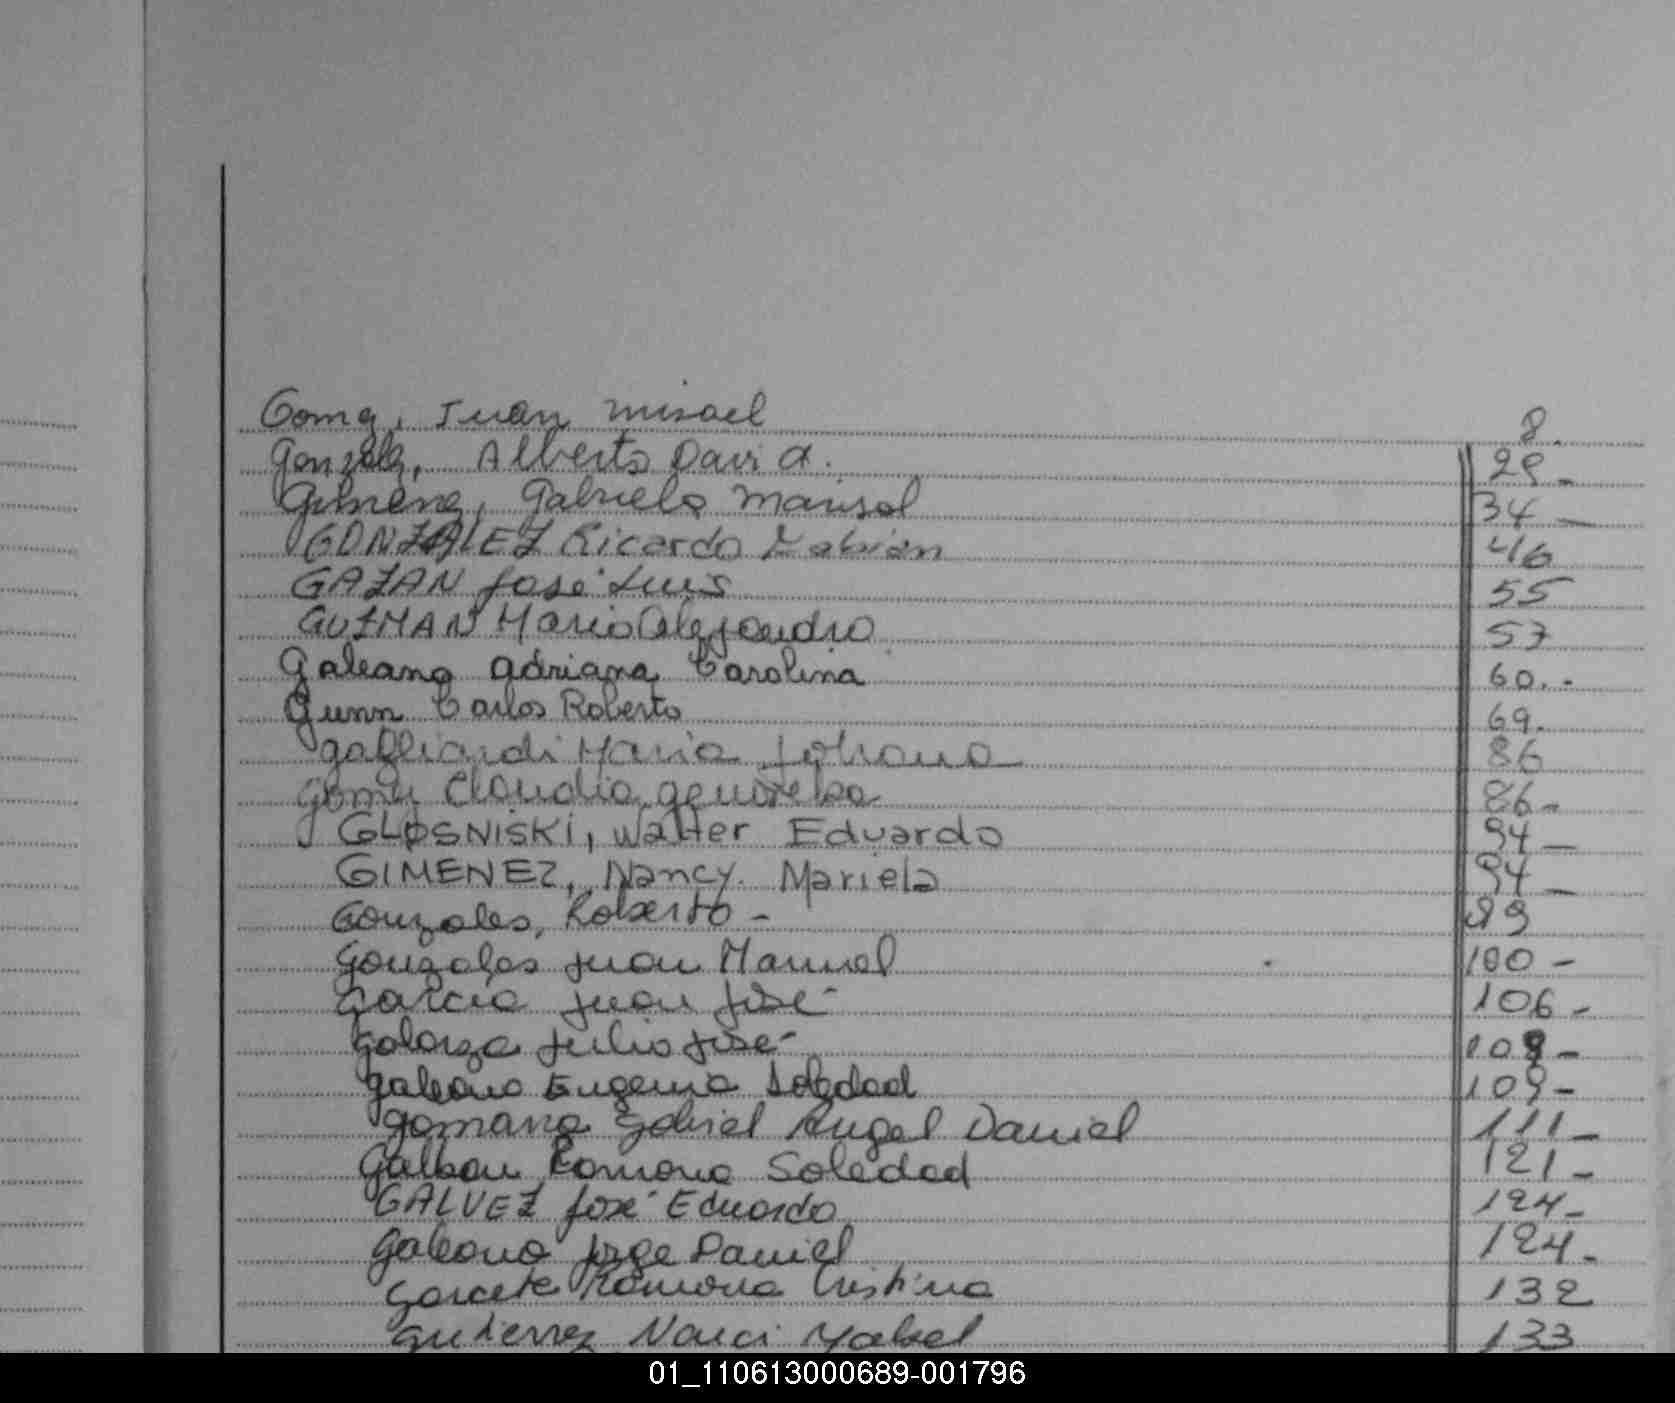 Gomez, Juan Misael 8.
Gonzalez, Alberto David. 29-
Gimenez, Gabriela Marisol 34-
GONZALEZ Ricardo Fabián 46
GAZAN José Luis 55
GUZMAN Mario Alejandro 57
Galeano Adriana Carolina 60.-
Gunn Carlos Roberto 69.
Gagliardi Maria Johana 86
Gomez Claudia 86-
GLOSNISKI, Walter Eduardo 94-
GIMENEZ, Nancy. Mariela 94-
Gonzales, Roberto- 99
Gonzales Juan Manuel 100-
Garcia Juan José 106-
Galarza Julio José 109-
Galeano Eugenia Soledad 109-
Gomara Gabriel Angel Daniel 111-
Ramona Soledad 121-
GALVEZ José Eduardo 124-
Galeano Jorge Daniel 124-
Garcete Ramona Cristina 132
Gutierrez Ysabel 133
01_110613000689-001796